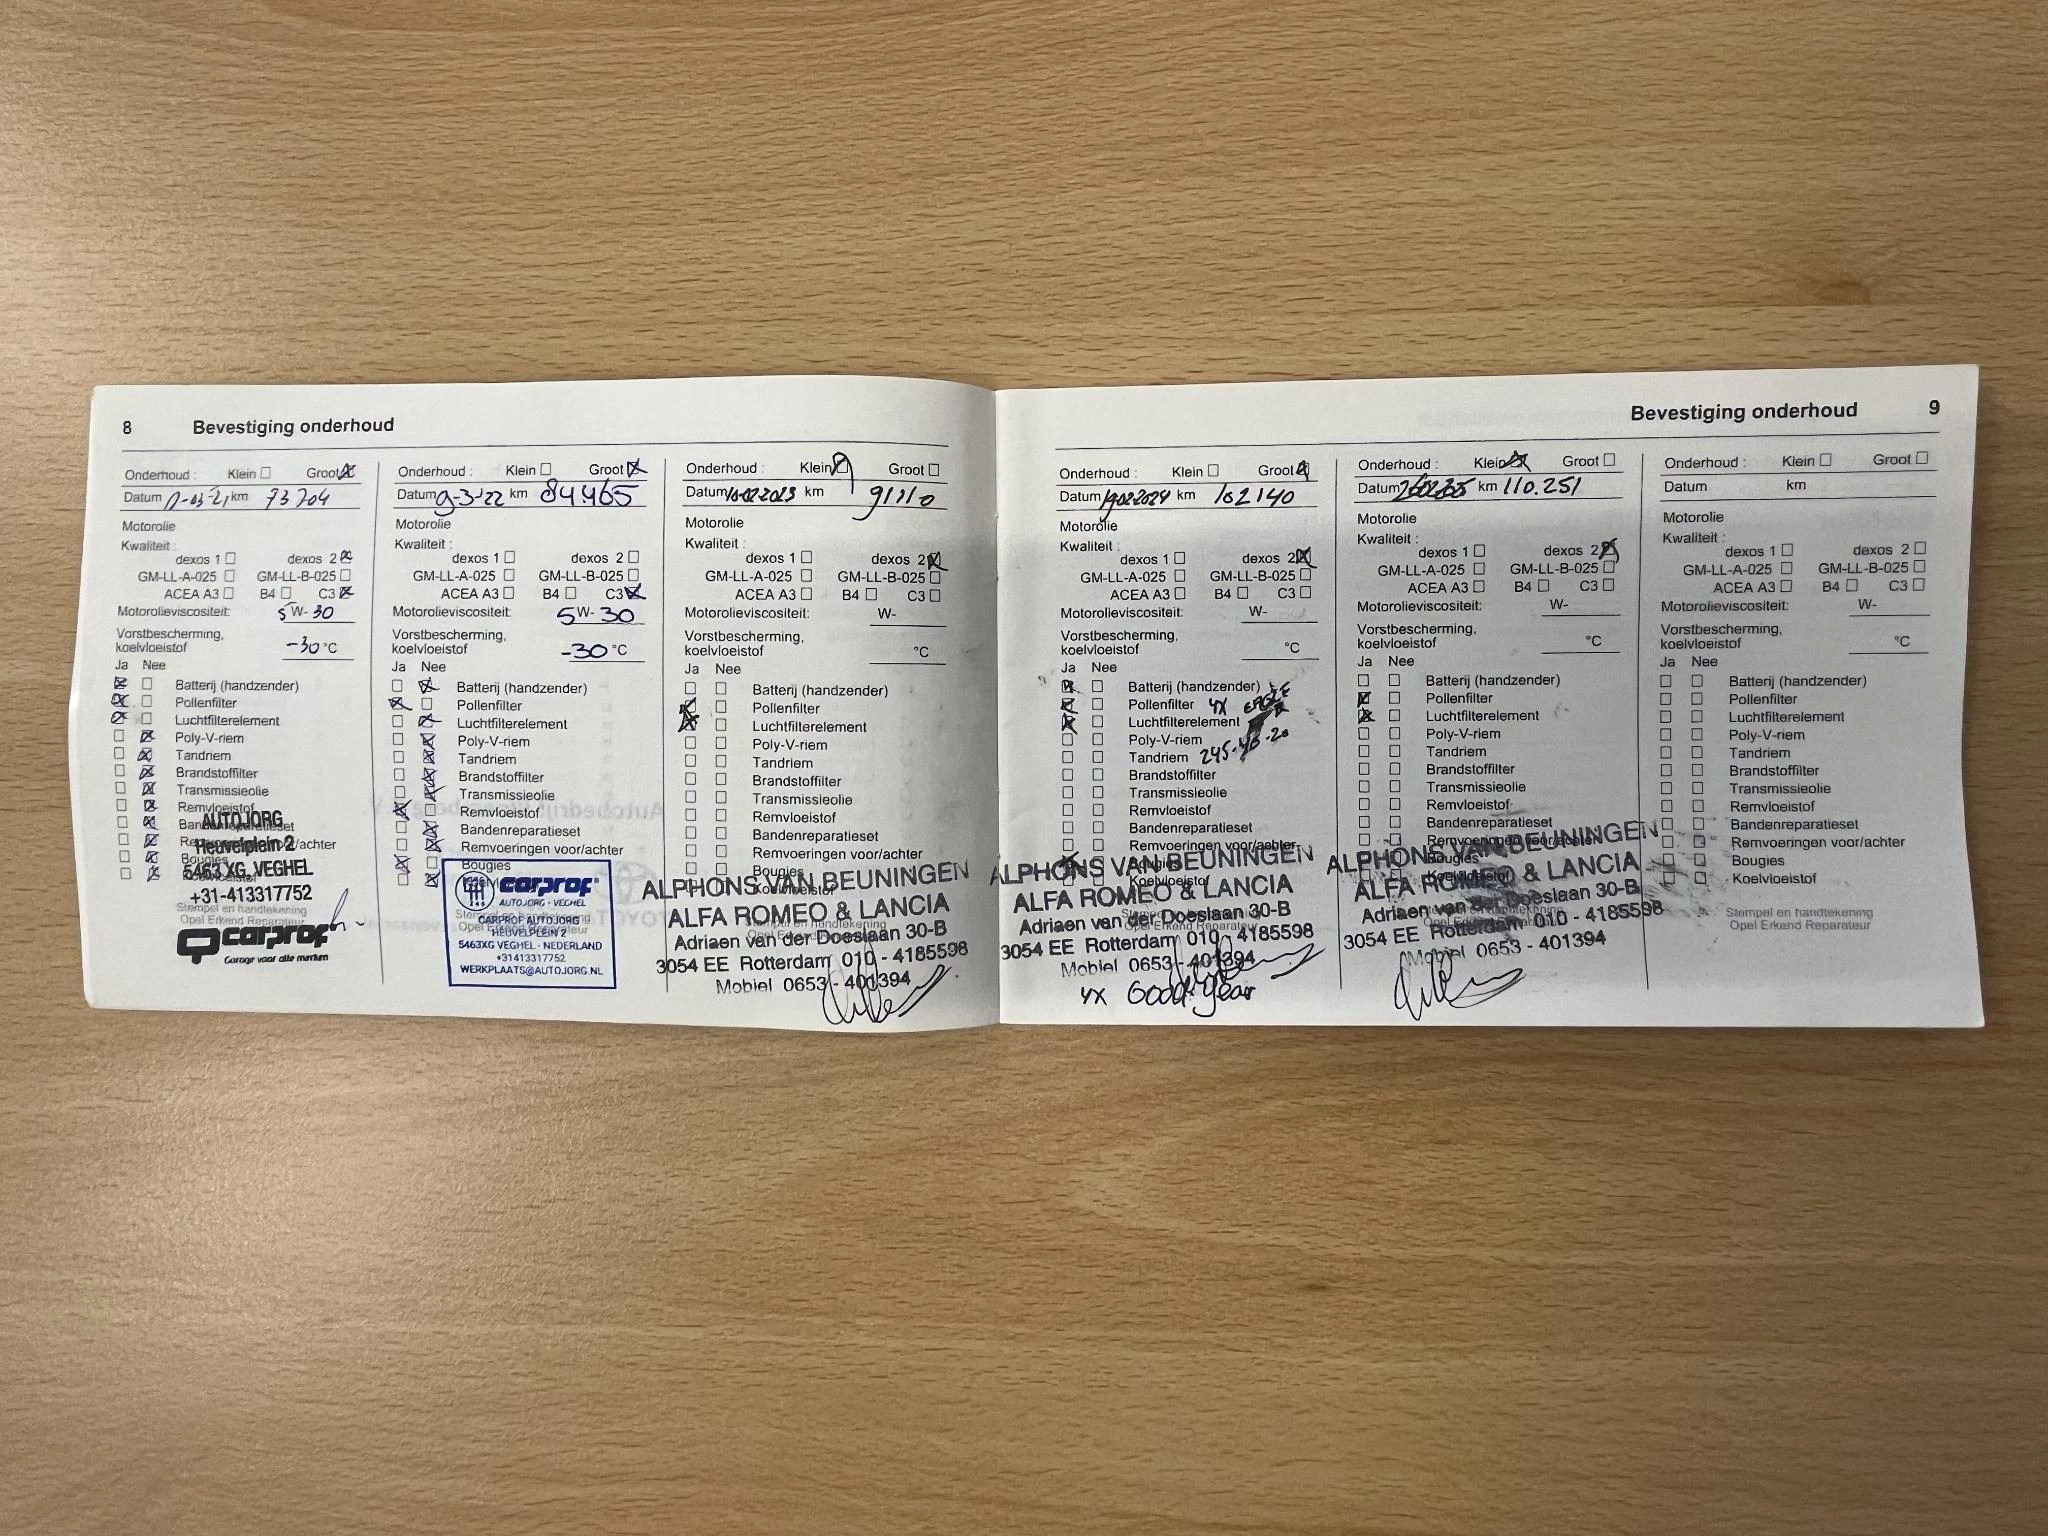 8 Bevestiging onderhoud
Onderhoud : Klein Groot
Datum km 73704
Motorolie
Kwaliteit :
dexos 1 dexos 2
GM-LL-A-025 GM-LL-B-025
ACEA A3 B4 C3
Motorolieviscositeit: 5W-30
Vorstbescherming,
koelvloeistof -30 °C
Ja Nee
Batterij (handzender)
Pollenfilter
Luchtfilterelement
Poly-V-riem
Tandriem
Brandstoffilter
Transmissieolie
Remvloeistof
Bandenreparatieset
Remvoeringen voor/achter
Bougies
Koelvloeistof
AUTOJORG
Heuvelplein 2
5463 XG VEGHEL
+31-413317752
Stempel en handtekening
Opel Erkend Reparateur
carprof
Garage voor alle merken
Onderhoud : Klein Groot
Datum 9-3-'22 km 84.465
Motorolie
Kwaliteit :
dexos 1 dexos 2
GM-LL-A-025 GM-LL-B-025
ACEA A3 B4 C3
Motorolieviscositeit: 5W-30
Vorstbescherming,
koelvloeistof -30 °C
Ja Nee
Batterij (handzender)
Pollenfilter
Luchtfilterelement
Poly-V-riem
Tandriem
Brandstoffilter
Transmissieolie
Remvloeistof
Bandenreparatieset
Remvoeringen voor/achter
Bougies
carprof
AUTOJORG - VEGHEL
CARPROF AUTOJORG
HEUVELPLEIN 2
5463XG VEGHEL - NEDERLAND
+31413317752
WERKPLAATS@AUTOJORG.NL
Onderhoud : Klein Groot
Datum 10-02-2023 km 91110
Motorolie
Kwaliteit :
dexos 1 dexos 2
GM-LL-A-025 GM-LL-B-025
ACEA A3 B4 C3
Motorolieviscositeit: W-
Vorstbescherming,
koelvloeistof °C
Ja Nee
Batterij (handzender)
Pollenfilter
Luchtfilterelement
Poly-V-riem
Tandriem
Brandstoffilter
Transmissieolie
Remvloeistof
Bandenreparatieset
Remvoeringen voor/achter
Bougies
Koelvloeistof
ALPHONS VAN BEUNINGEN
ALFA ROMEO & LANCIA
Adriaen van der Doeslaan 30-B
3054 EE Rotterdam 010 - 4185598
Mobiel 0653 - 401394
Bevestiging onderhoud 9
Onderhoud : Klein Groot
Datum 19022024 km 102140
Motorolie
Kwaliteit :
dexos 1 dexos 2
GM-LL-A-025 GM-LL-B-025
ACEA A3 B4 C3
Motorolieviscositeit: W-
Vorstbescherming,
koelvloeistof °C
Ja Nee
Batterij (handzender)
Pollenfilter 4X
Luchtfilterelement
Poly-V-riem
Tandriem 245-40-20
Brandstoffilter
Transmissieolie
Remvloeistof
Bandenreparatieset
Remvoeringen voor/achter
Bougies
Koelvloeistof
ALPHONS VAN BEUNINGEN
ALFA ROMEO & LANCIA
Adriaen van der Doeslaan 30-B
3054 EE Rotterdam 010 - 4185598
Mobiel 0653 - 401394
4X Good year
Onderhoud : Klein Groot
Datum km 110.251
Motorolie
Kwaliteit :
dexos 1 dexos 2
GM-LL-A-025 GM-LL-B-025
ACEA A3 B4 C3
Motorolieviscositeit: W-
Vorstbescherming,
koelvloeistof °C
Ja Nee
Batterij (handzender)
Pollenfilter
Luchtfilterelement
Poly-V-riem
Tandriem
Brandstoffilter
Transmissieolie
Remvloeistof
Bandenreparatieset
Remvoeringen voor/achter
Bougies
Koelvloeistof
ALPHONS VAN BEUNINGEN
ALFA ROMEO & LANCIA
Adriaen van der Doeslaan 30-B
3054 EE Rotterdam 010 - 4185598
Mobiel 0653 - 401394
Onderhoud : Klein Groot
Datum km
Motorolie
Kwaliteit :
dexos 1 dexos 2
GM-LL-A-025 GM-LL-B-025
ACEA A3 B4 C3
Motorolieviscositeit: W-
Vorstbescherming,
koelvloeistof °C
Ja Nee
Batterij (handzender)
Pollenfilter
Luchtfilterelement
Poly-V-riem
Tandriem
Brandstoffilter
Transmissieolie
Remvloeistof
Bandenreparatieset
Remvoeringen voor/achter
Bougies
Koelvloeistof
Stempel en handtekening
Opel Erkend Reparateur